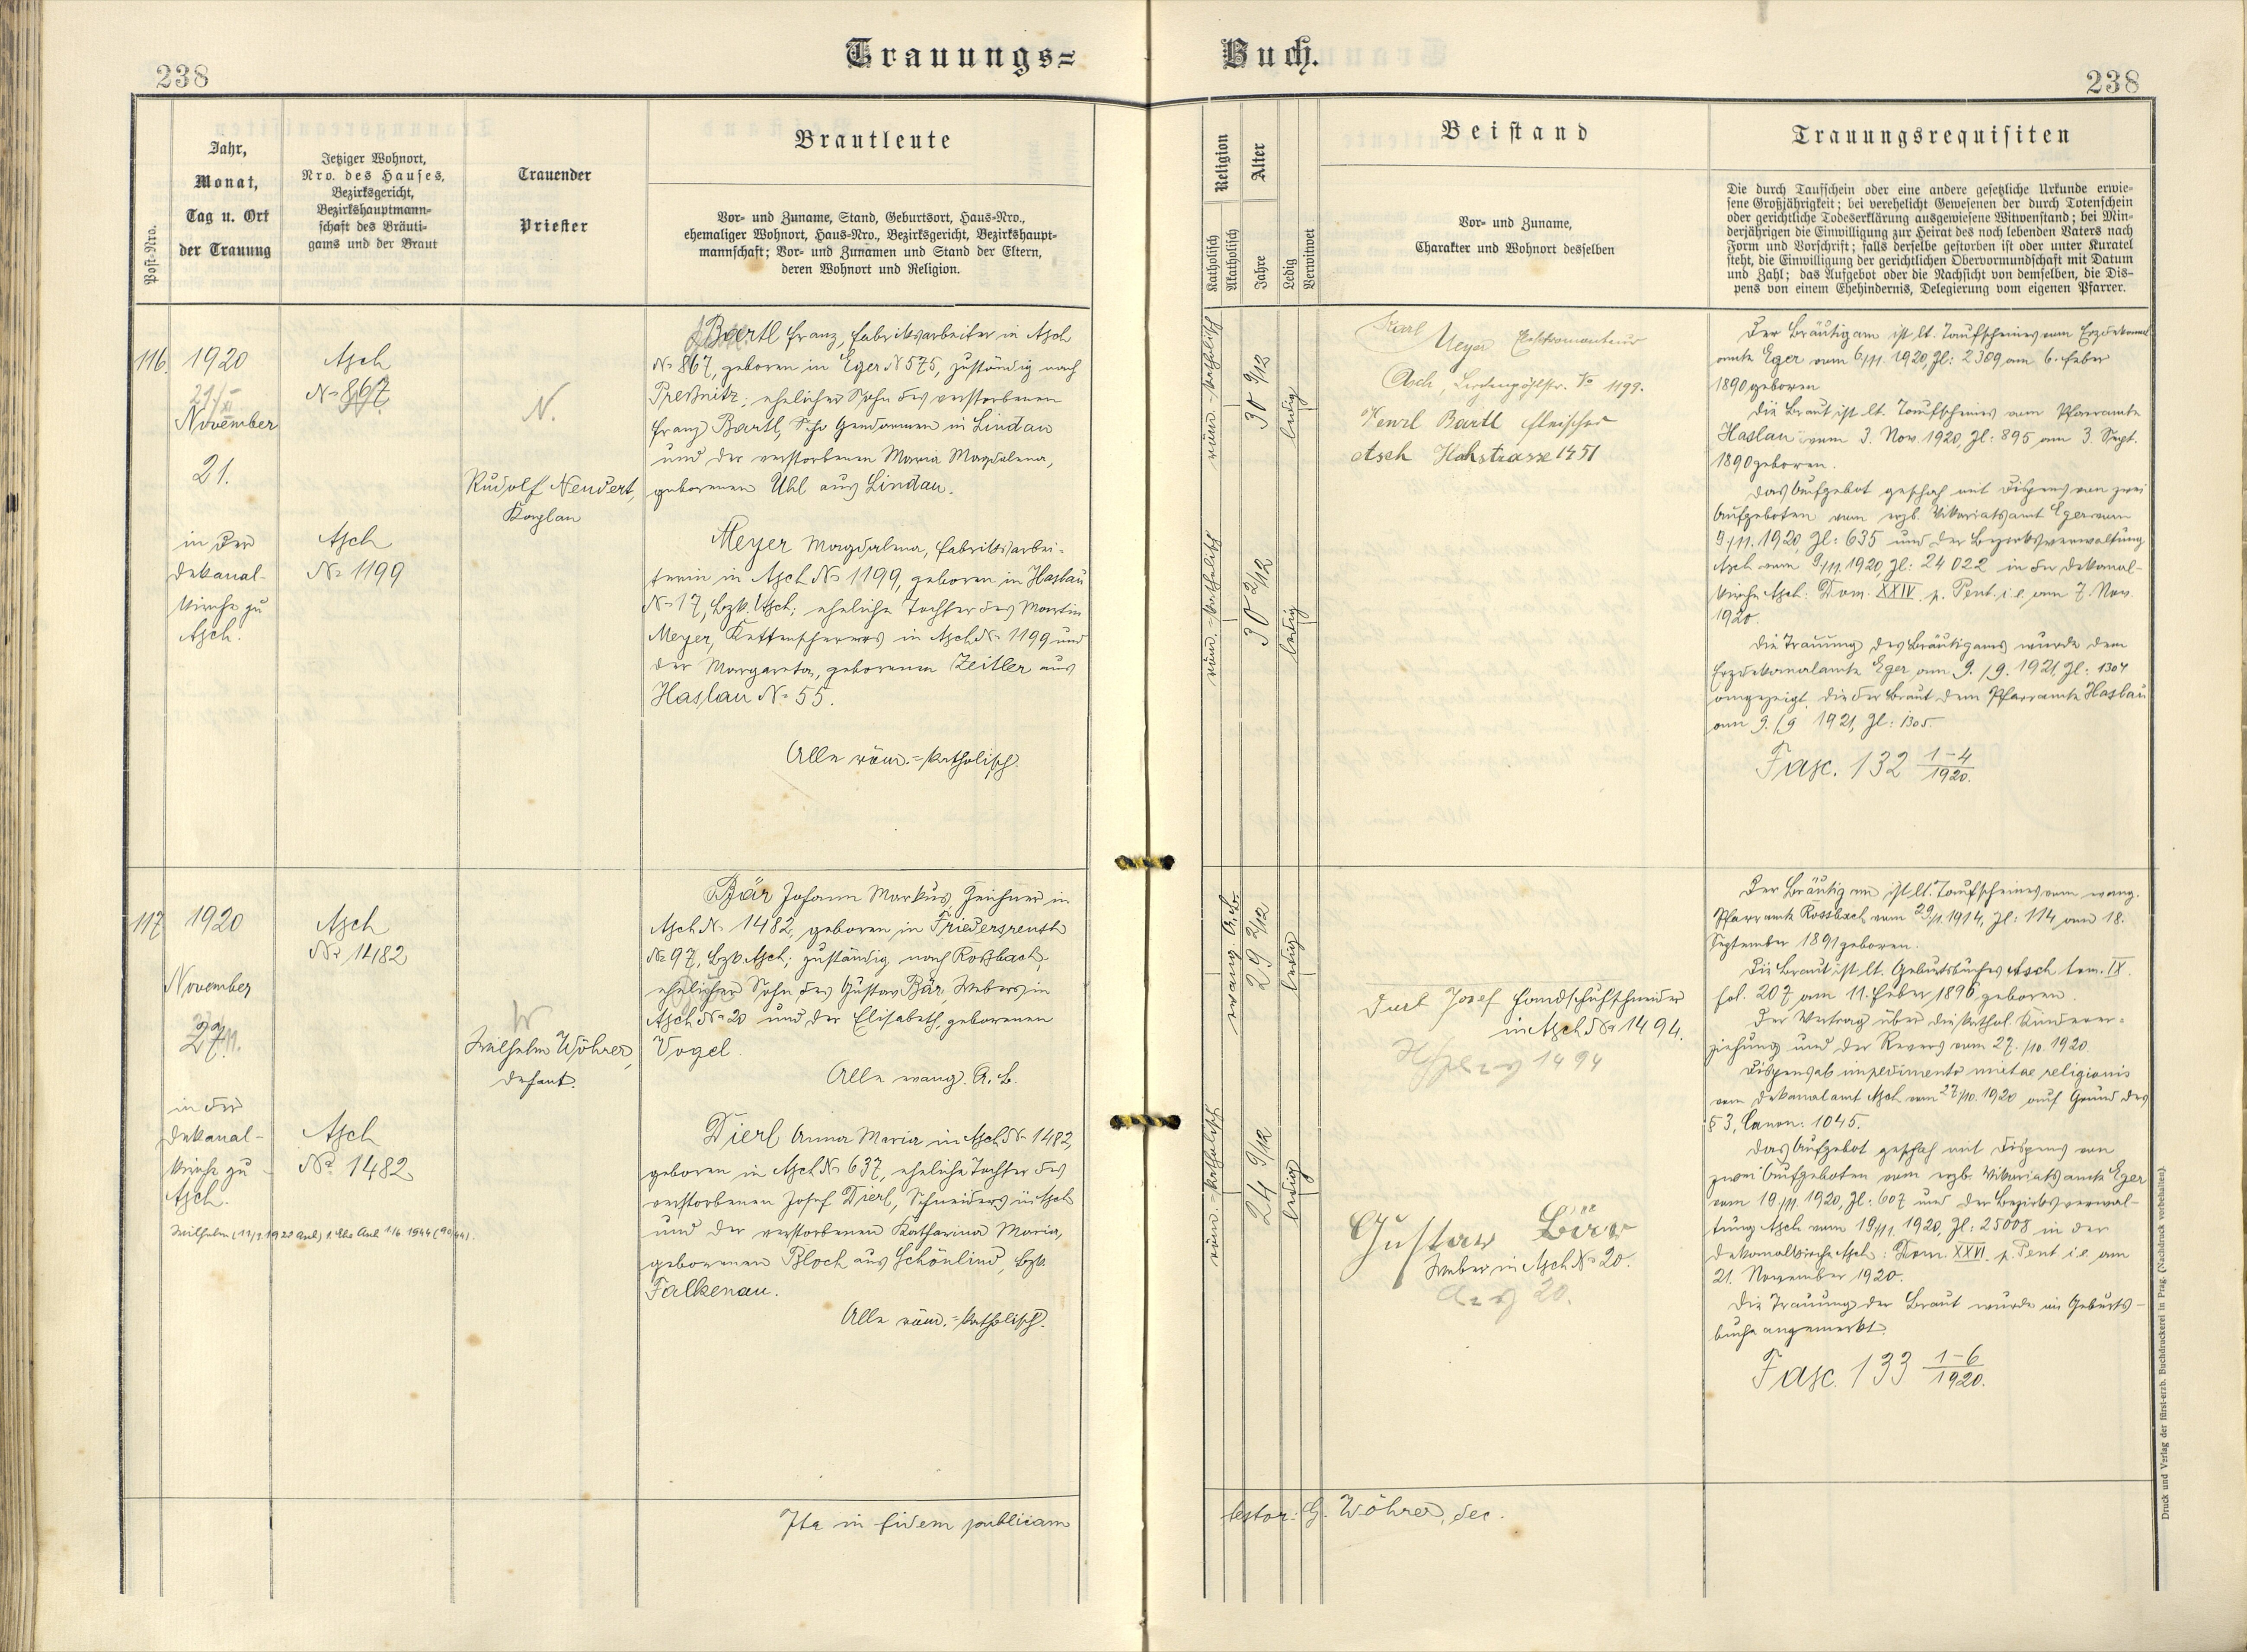 238
Trauungs=
Buch.
238
Post-Nro.
Jahr,
Monat,
Tag u. Ort
der Trauung
Jetziger Wohnort,
Nro. des Hauses,
Bezirksgericht,
Bezirkshauptmann-
schaft des Bräuti-
gams und der Braut
Trauender
Priester
Brautleute
Vor- und Zuname, Stand, Geburtsort, Haus-Nro.,
ehemaliger Wohnort, Haus-Nro., Bezirksgericht, Bezirkshaupt-
mannschaft; Vor- und Zunamen und Stand der Eltern,
deren Wohnort und Religion.
116.
1920
November
21.
in der
Dekanal-
kirche zu
Asch.
Asch
№ 867
Asch
№ 1199
N.
Rudolf Neudert,
Kaplan
Bartl Franz, Fabriksarbeiter in Asch
№ 867, geboren in Eger № 575, zuständig nach
Preßnitz; ehelicher Sohn des verstorbenen
Franz Bartl, Gendarmen in Lindau
und der verstorbenen Maria Magdalena,
geborenen Uhl aus Lindau.
Meyer Magdalena, Fabriksarbei-
terin in Asch № 1199, geboren in Haslau
№ 17, Bzk. Asch; eheliche Tochter des Martin
Meyer, Kettenscherers in Asch № 1199 und
der Margareta, geborenen Zeitler aus
Haslau № 55.
Alle röm.=katholisch.
117
1920
November
27.
in der
Dekanal-
kirche zu
Asch.
Asch
№ 1482
Asch
№ 1482
W
Wilhelm Wöhrer,
Dechant.
Bär Johann Markus, Zeichner in
Asch № 1482, geboren in Friedersreuth
№ 97, Bzk. Asch; zuständig nach Roßbach,
ehelicher Sohn des Gustav Bär, Webers in
Asch № 20 und der Elisabeth, geborenen
Vogel.
Alle evang. A. B.
Dierl Anna Maria in Asch № 1482,
geboren in Asch № 637, eheliche Tochter des
verstorbenen Josef Dierl, Schneiders in Asch
und der verstorbenen Katharina Maria,
geborenen Bloch aus Schönlind, Bzk.
Falkenau.
Alle röm.=katholisch.
Ita in fidem publicam
Religion
Katholisch
Akatholisch
Alter
Jahre
Ledig
Verwitwet
Beistand
Vor- und Zuname,
Charakter und Wohnort desselben
Trauungsrequisiten
Die durch Taufschein oder eine andere gesetzliche Urkunde erwie-
sene Großjährigkeit; bei verehelicht Gewesenen der durch Totenschein
oder gerichtliche Todeserklärung ausgewiesene Witwenstand; bei Min-
derjährigen die Einwilligung zur Heirat des noch lebenden Vaters nach
Form und Vorschrift; falls derselbe gestorben ist oder unter Kuratel
steht, die Einwilligung der gerichtlichen Obervormundschaft mit Datum
und Zahl; das Aufgebot oder die Nachsicht von demselben, die Dis-
pens von einem Ehehindernis, Delegierung vom eigenen Pfarrer.
röm.-katholisch
30 9/12
ledig
röm.-katholisch
30 2/12
ledig
Karl
Meyer Elektromonteur
Asch, 1199.
Wenzl Bartl Fleischer
Asch Hahstrasse 1451
Der Bräutigam ist lt. Taufscheines vom Erzdekanal-
amte Eger vom 6/11. 1920, Zl: 2309 am 6. Feber
1890 geboren
Die Braut ist lt. Taufscheines vom Pfarramte
Haslau vom 3. Nov. 1920, Zl: 895 am 3. Sept.
1890 geboren.
Das Aufgebot geschah mit Dispens von zwei
Aufgeboten vom erzb. Vikariatsamt Eger vom
9/11. 1920, Zl: 635 und der Bezirksverwaltung
Asch vom 9/11. 1920, Zl: 24022 in der Dekanal-
kirche Asch: Dom. XXIV. p. Pent. i. e. am 7. Nov.
1920.
Die Trauung des Bräutigams wurde dem
Erzdekanalamte Eger am 9./9. 1921, Zl: 1304
angezeigt, die der Braut dem Pfarramte Haslau
am 9./9 1921, Zl: 1305.
Fasc. 132 1-4/1920.
evang. A. B.
29 2/12
ledig
röm.-katholisch
24 9/12
ledig
Dierl Josef Handschuhschneider
in Asch № 1494.
1494
Gustav Bär
Weber in Asch № 20.
Asch 20.
Der Bräutigam ist lt. Taufscheines vom evang.
Pfarramte Rossbach vom 29/1. 1914, Zl: 114 am 18.
September 1891 geboren.
Die Braut ist lt. Geburtsbuches Asch tom. IX.
fol. 207 am 11. Feber 1896 geboren.
Der Vertrag über die kathol. Kinderer-
ziehung und der Revers vom 27./10. 1920.
Dispens ab impedimento mixtae religionis
vom Dekanalamt Asch vom 27/10. 1920 auf Grund des
§ 3, Canon: 1045.
Das Aufgebot geschah mit Dispens von
zwei Aufgeboten vom erzb. Vikariatsamte Eger
vom 19/11 1920, Zl: 607 und der Bezirksverwal-
tung Asch vom 19/11. 1920, Zl: 25008 in der
Dekanalkirche Asch: Dom. XXVI. p. Pent i. e. am
21. November 1920.
Die Trauung der Braut wurde im Geburts-
buche angemerkt.
Fasc. 133 1-6/1920.
testor: G. Wöhrer, dec.
Druck und Verlag der fürst-erzb. Buchdruckerei in Prag. (Nachdruck vorbehalten).